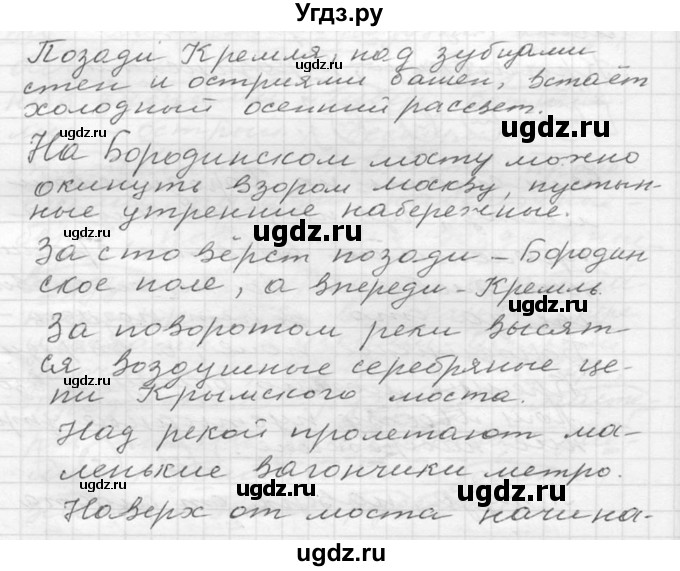 Угдз.ру
Позади Кремля, над зубцами
стен и остриями башен, встаёт
холодный осенний рассвет.
ugdz.ru
ugdz.ru
На Бородинском мосту можно
окинуть взором Москву, пустын-
ные утренние набережные.
ugdz.ru
ugdz.ru
За сто вёрст позади - Бородин
ское поле, а впереди - Кремль.
ugdz.ru
ugdz.ru
За поворотом реки высят-
ся воздушные серебряные це-
пи Крымского моста.
ugdz.ru
ugdz.ru
Над рекой пролетают ма-
ленькие вагончики метро.
ugdz.ru
ugdz.ru
ugdz.ru
Наверх от моста начина-
ugdz.ru